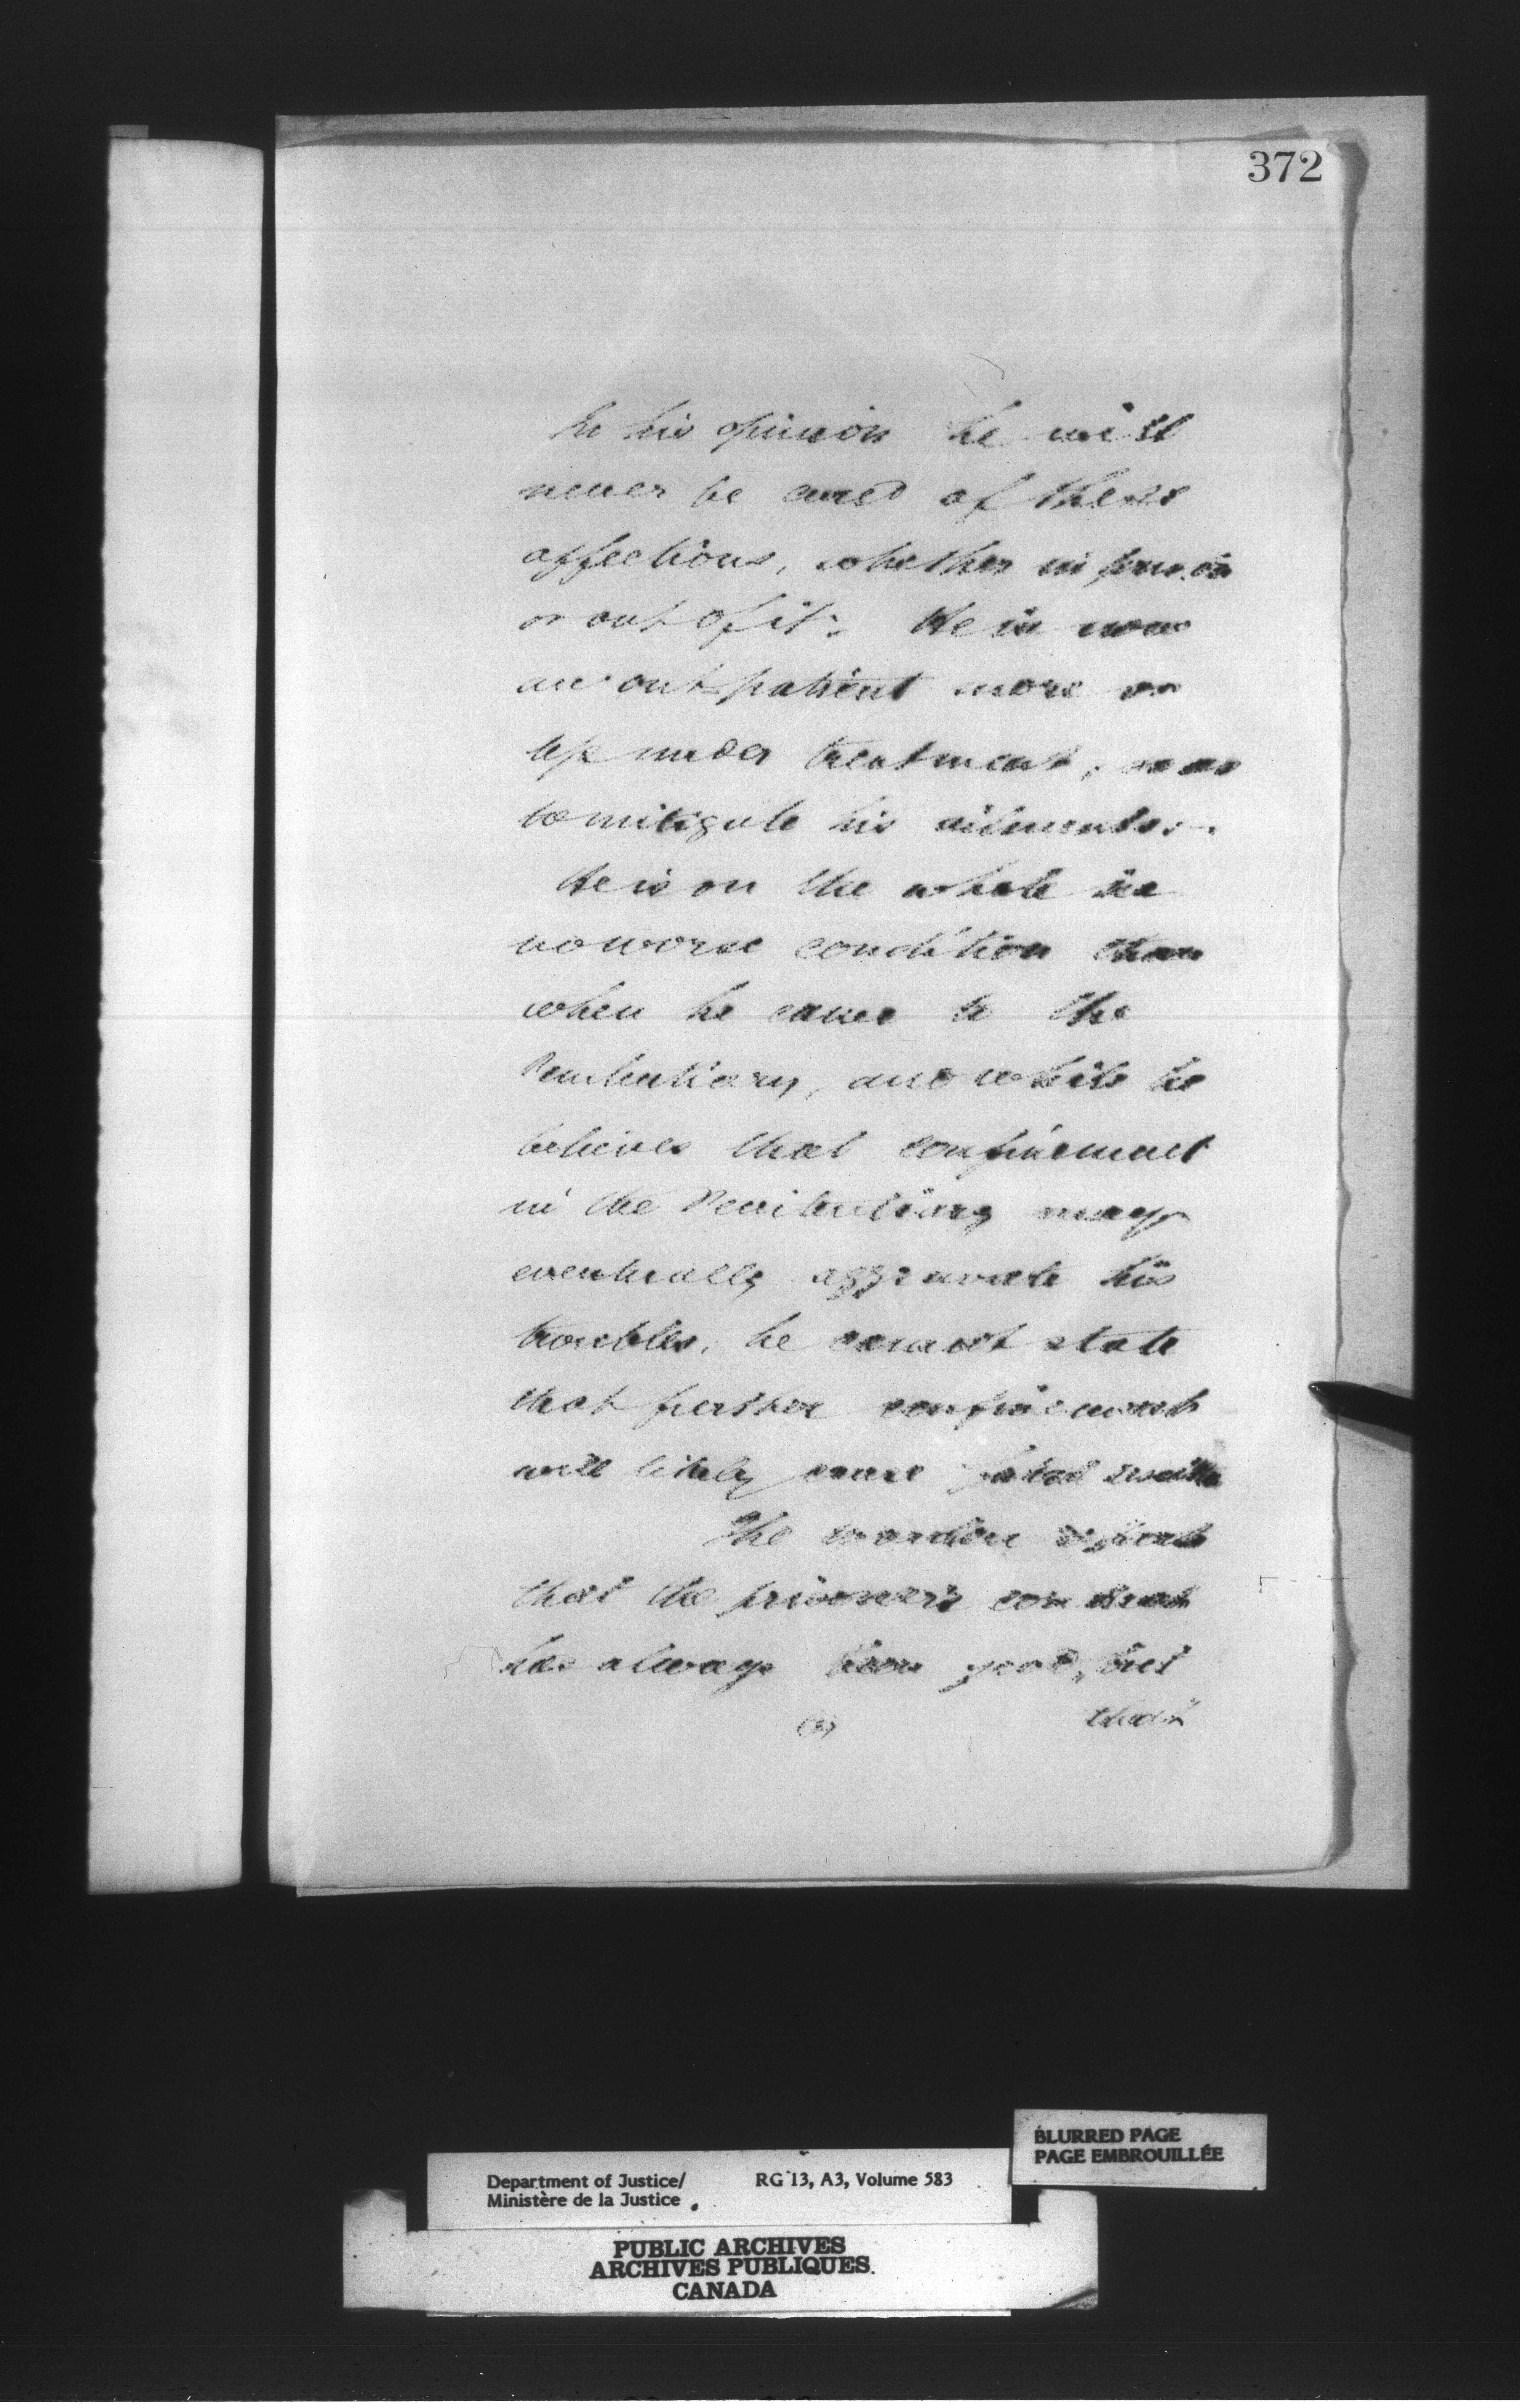 372
In his opinion he will
never be cured of these
affections, whether in prison
or out of it. He is now
an out-patient more or
less under treatment, so as
to mitigate his ailments.
He is on the whole in
no worse condition than
when he came to the
Penitentiary, and while he
believes that confinement
in the Penitentiary may
eventually aggravate his
troubles, he cannot state
that further confinement
will likely cause fatal results
The warden reports
that the prisoner's conduct
has always been good, but
(2)
BLURRED PAGE
PAGE EMBROUILLÉE
Department of Justice/ RG 13, A3, Volume 583
Ministère de la Justice
PUBLIC ARCHIVES
ARCHIVES PUBLIQUES
CANADA